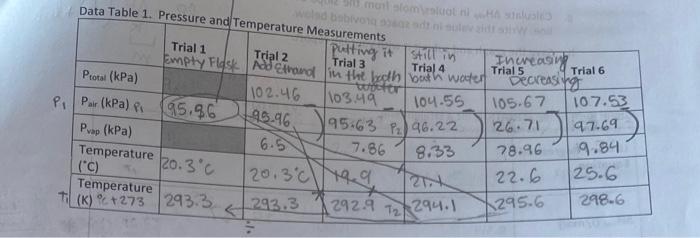 Data Table 1. Pressure and Temperature Measurements
Trial 1 Empty Flask
Trial 2 Add Ethanol
Putting it Trial 3 in the bath water
Still in Trial 4 bath water
Increasing Trial 5 Decreasing
Trial 6
Ptotal (kPa) 102.46 103.49 104.55 105.67 107.53
P1 Pair (kPa) P1 95.96 95.96 95.63 P2 96.22 26.71 97.69
Pvap (kPa) 6.5 7.86 8.33 78.96 9.84
Temperature (°C) 20.3°C 20.3°C 19.9 21.1 22.6 25.6
T1 Temperature (K) °C +273 293.3 293.3 292.9 T2 294.1 295.6 298.6
÷